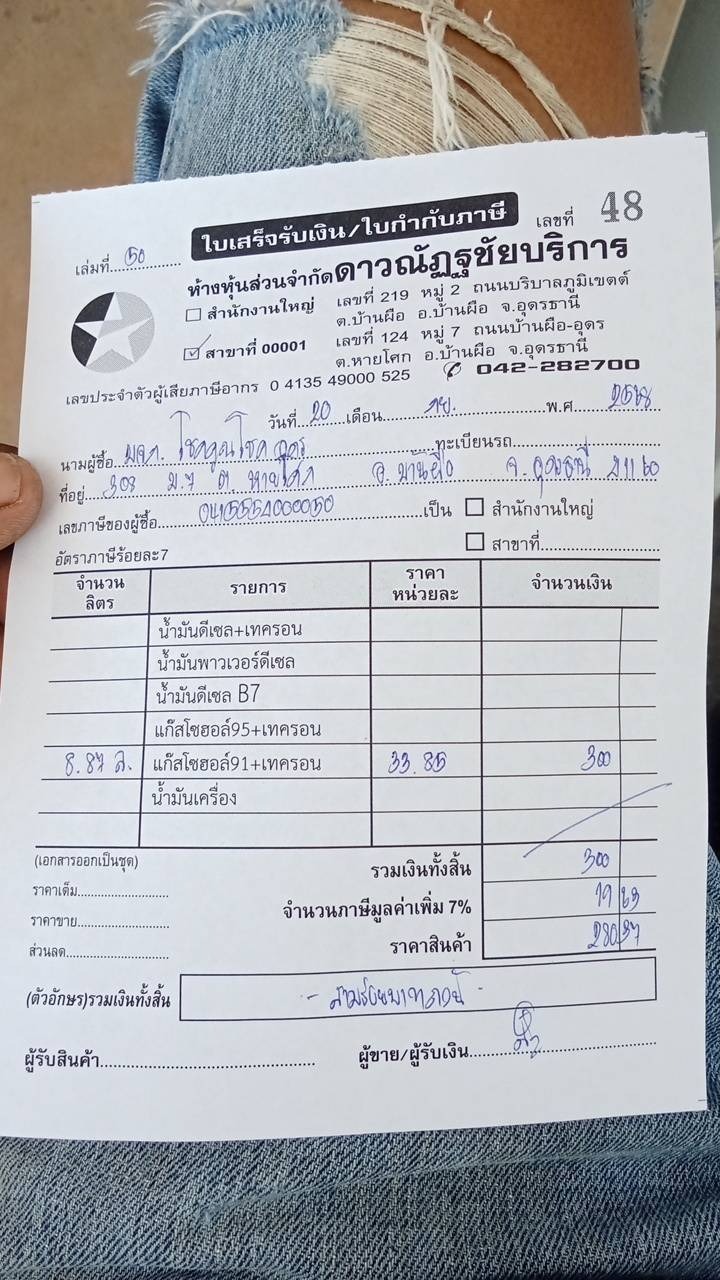 ใบเสร็จรับเงิน/ใบกำกับภาษี
เล่มที่ 50 เลขที่ 48
ห้างหุ้นส่วนจำกัดดาวณัฏฐชัยบริการ
☐ สำนักงานใหญ่ เลขที่ 219 หมู่ 2 ถนนบริบาลภูมิเขตต์
ต.บ้านผือ อ.บ้านผือ จ.อุดรธานี
☑ สาขาที่ 00001 เลขที่ 124 หมู่ 7 ถนนบ้านผือ-อุดร
ต.หายโศก อ.บ้านผือ จ.อุดรธานี
เลขประจำตัวผู้เสียภาษีอากร 0 4135 49000 525 042-282700
วันที่ 20 เดือน กย. พ.ศ 2568
นามผู้ซื้อ หจก. โชคคูณโชค อุดร ทะเบียนรถ
ที่อยู่ 308 ม.7 ต. หายโศก อ. บ้านผือ จ. อุดรธานี 41160
เลขภาษีของผู้ซื้อ เป็น ☐ สำนักงานใหญ่
อัตราภาษีร้อยละ7 ☐ สาขาที่
จำนวนลิตร รายการ ราคาหน่วยละ จำนวนเงิน
น้ำมันดีเซล+เทครอน
น้ำมันพาวเวอร์ดีเซล
น้ำมันดีเซล B7
แก๊สโซฮอล์95+เทครอน
8.87 ล. แก๊สโซฮอล์91+เทครอน 33.85 300
น้ำมันเครื่อง
(เอกสารออกเป็นชุด) รวมเงินทั้งสิ้น 300
ราคาเต็ม จำนวนภาษีมูลค่าเพิ่ม 7% 19 63
ราคาขาย
ราคาสินค้า 280 37
ส่วนลด
(ตัวอักษร)รวมเงินทั้งสิ้น - สามร้อยบาทถ้วน -
ผู้รับสินค้า ผู้ขาย/ผู้รับเงิน